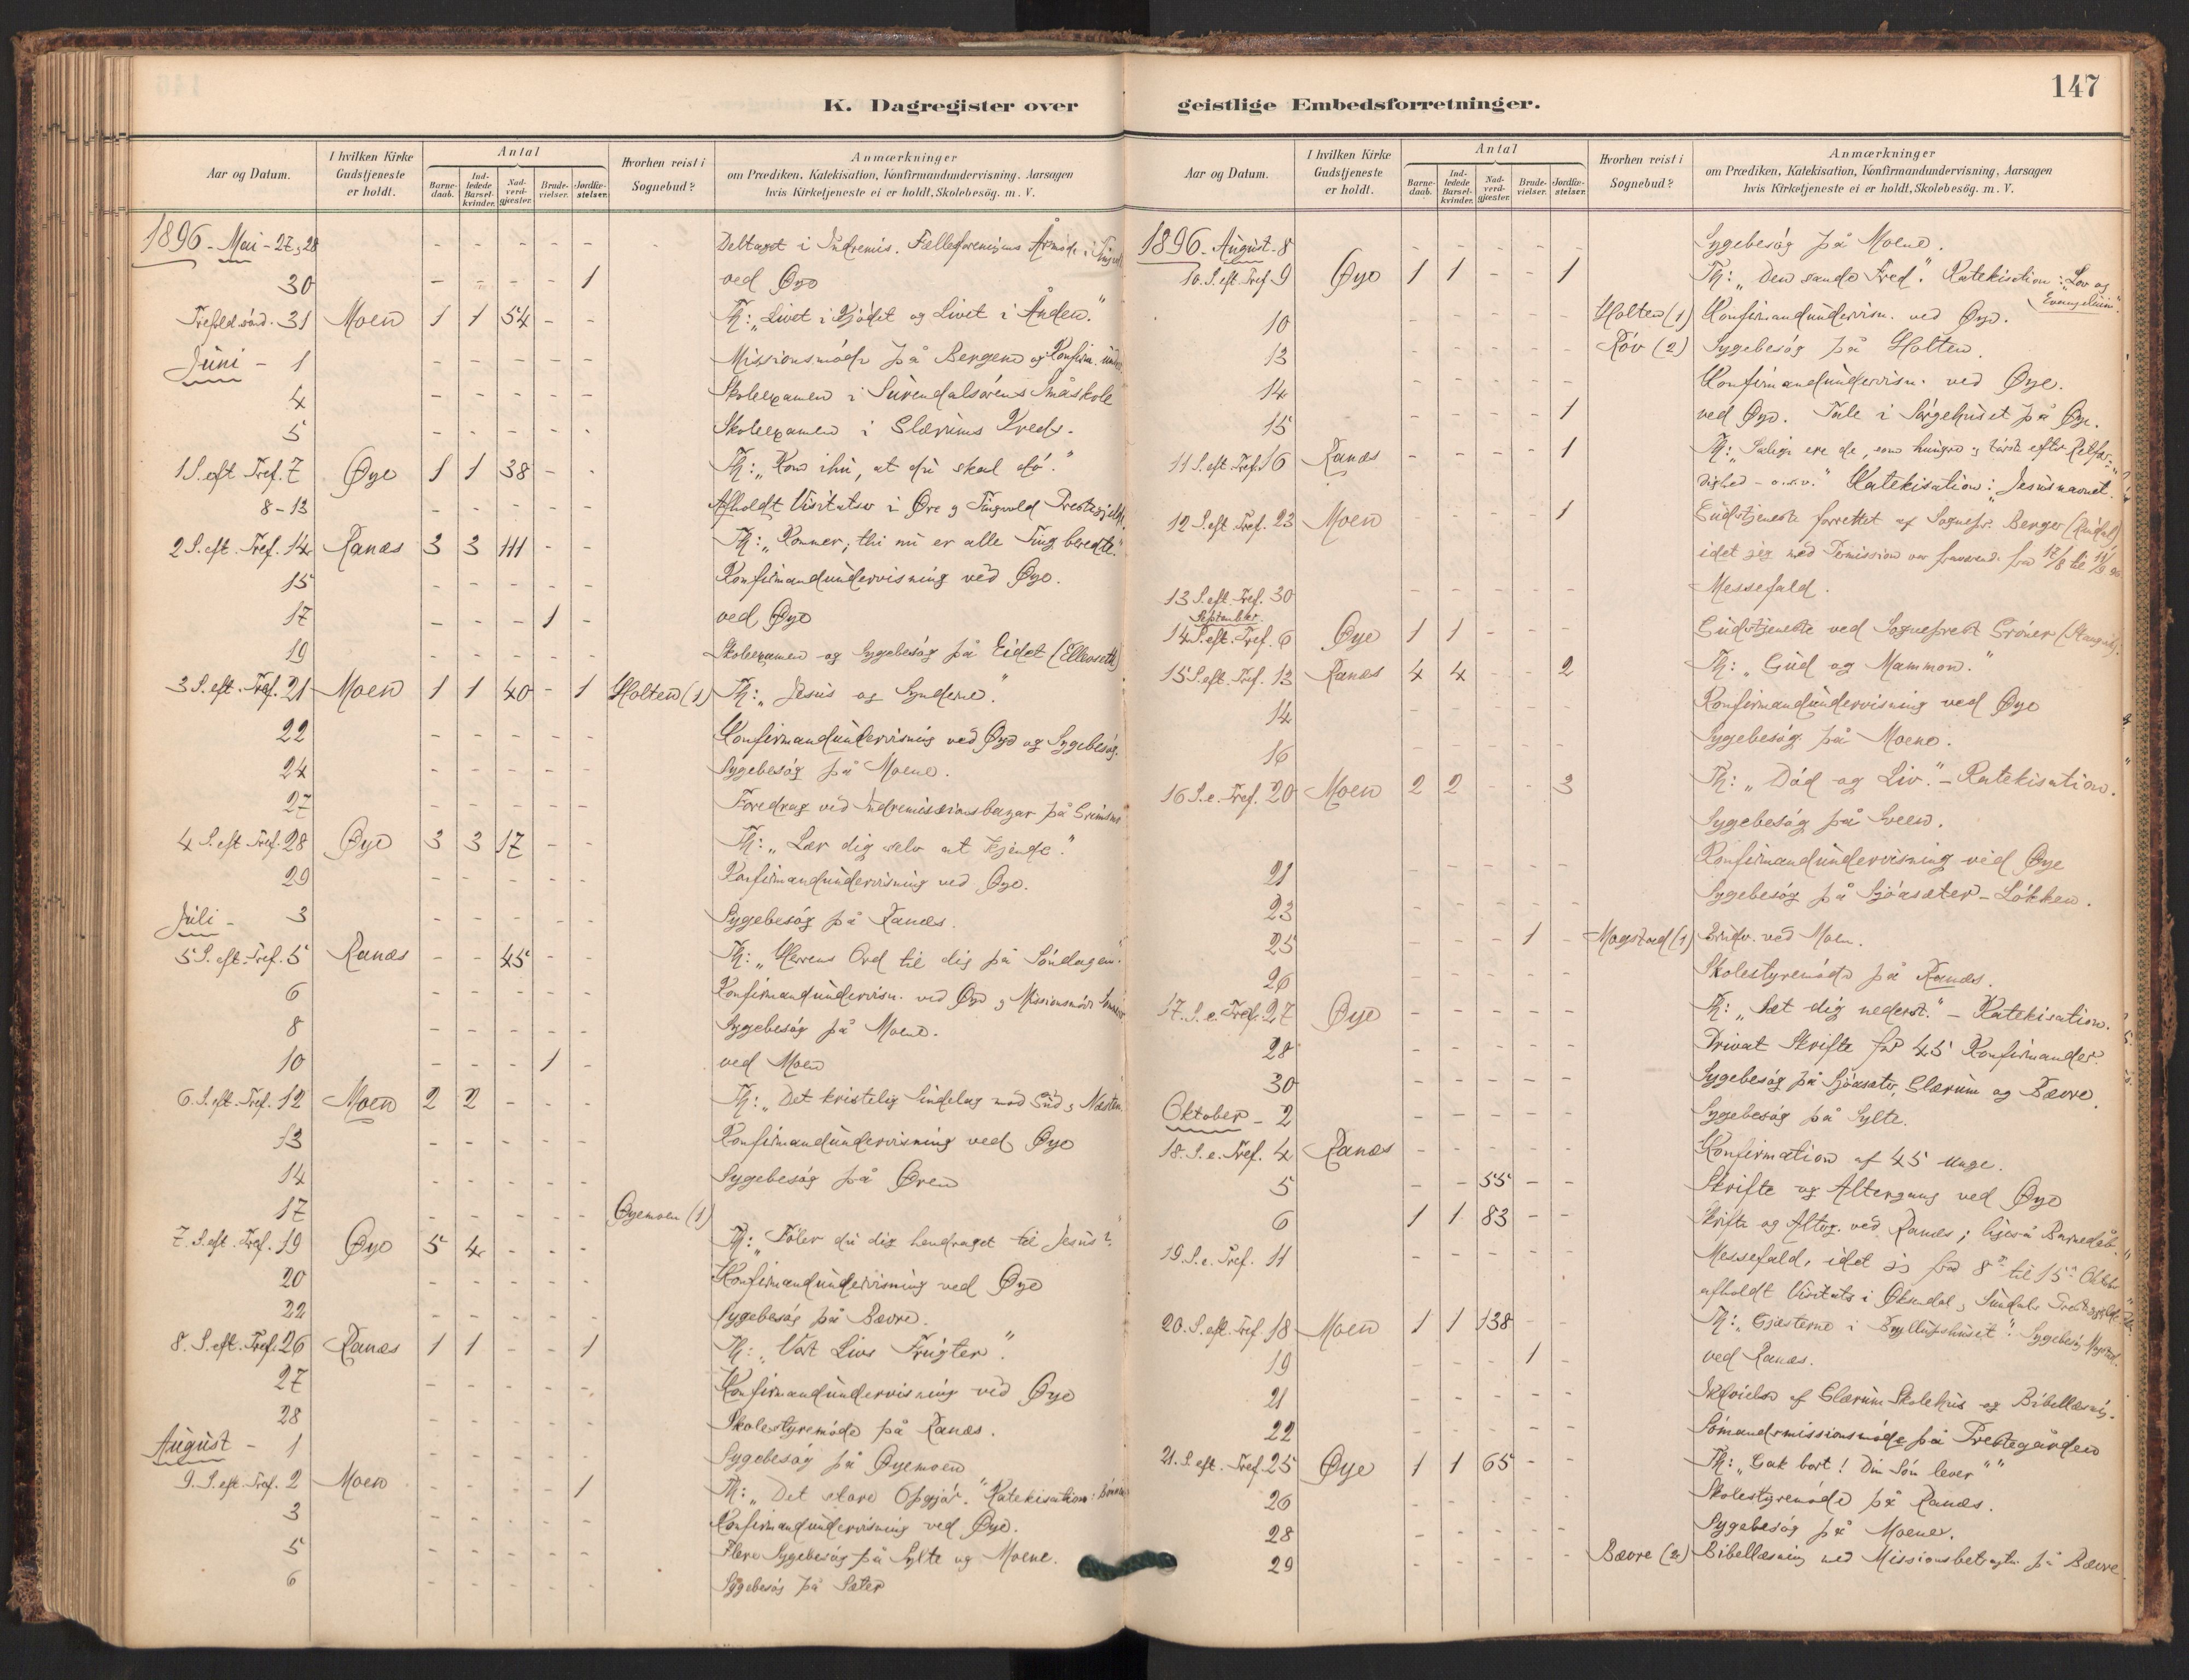 K. Dagregister over
Aar og Datum.
I hvilken Kirke Gudstjeneste er holdt.
Antal
Barne-daab.
Ind-ledede Barsel-kvinder.
Nad-verd-gjæster.
Brude-vielser.
Jordfæ-stelser.
Hvorhen reist i Sognebud?
Anmærkninger
om Prædiken, Katekisation, Konfirmandundervisning. Aarsagen
hvis Kirketjeneste ei er holdt, Skolebesög. m. V.
1896 - Mai - 27, 28 - - - - - Deltaget i Indremis. Fællesforenigens Årmøde i
30 - - - - 1 ved Øye
Trefold. sönd. 31 Moen 1 1 54 - - Th: "Livet i Kjödet og Livet i Ånden."
Juni - 1 - - - - - Missionsmøde på Bergene og Konfirm.
4 - - - - - Skoleexamen i Surendalsörens Småskole
5 - - - - - Skoleexamen i Glærums Kreds.
1 S. eft Tref. 7 Øye 1 1 38 - - Th: "Kom ihu, at du skal dö."
8-13 - - - - - Afholdt Visitatser i Øre og Tingvold Prestegjeld.
2 S. eft. Tref. 14 Ranæs 3 3 111 - - Th: "Kommer; thi nu er alle Ting beredte."
15 - - - - - Konfirmandundervisning ved Øye.
17 - - - 1 - ved Øye
19 - - - - - Skoleexamen og Sygebesög på Eidet
3 S. eft. Tref. 21 Moen 1 1 40 - 1 Holten (1) Th: "Jesus og Synderne."
22 - - - - - Konfirmandundervisning ved Øye og Sygebesög.
24 - - - - - Sygebesög på Moene.
27 - - - - - Foredrag ved Indremissionsbazar på
4 S. eft Tref. 28 Øye 3 3 17 - - Th: "Lær dig selv at kjende."
29 - - - - - Konfirmandundervisning ved Øye.
Juli - 3 - - - - - Sygebesög på Ranæs.
5 S. eft. Tref. 5 Ranæs - - 45 - - Th: "Herrens Ord til dig på Söndagen."
6 - - - - - Konfirmandundervisn. ved Øye og Missionsmöde
8 - - - - - Sygebesög på Moene.
10 - - - 1 - ved Moen
6. S. eft. Tref. 12 Moen 2 2 - - - Th: "Det kristelig Sindelag mod Gud og Næsten.
13 - - - - - Konfirmandundervisning ved Øye
14 - - - - - Sygebesög på Øren
17 - - - - - Øyemoen (1)
7. S. eft. Tref. 19 Øye 5 4 - - - Th: "Föler du dig hendraget til Jesus?
20 - - - - - Konfirmandundervisning ved Øye
22 - - - - - Sygebesög på Bævre.
8. S. eft. Tref. 26 Ranæs 1 1 - - 1 Th: "Vort Livs Frugter."
27 - - - - - Konfirmandundervisning ved Øye
28 - - - - - Skolestyremøde på Ranæs.
August - 1 - - - - - Sygebesög på Øyemoen
9. S. eft. Tref. 2 Moen - - - - 1 Th: "Det store Opgjör." Katekisation:
3 - - - - - Konfirmandundervisning ved Øye.
5 - - - - - Flere Sygebesög på Sylte og Moene.
6 - - - - - Sygebesög på Sæter
147
geistlige Embedsforretninger.
Aar og Datum.
I hvilken Kirke Gudstjeneste er holdt.
Antal
Barne-daab.
Ind-ledede Barsel-kvinder.
Nad-verd-gjæster.
Brude-vielser.
Jordfæ-stelser.
Hvorhen reist i Sognebud?
Anmærkninger
om Prædiken, Katekisation, Konfirmandundervisning, Aarsagen
hvis Kirketjeneste ei er holdt, Skolebesög. m. V.
1896 - August - 8 - - - - - Sygebesög på Moene.
10. S. eft. Tref. 9 Øye 1 1 - - 1 Th: "Den sande Fred." Katekisation: "Lov og
Evangelium."
10 - - - - - Holten (1) Konfirmandundervisn. ved Øye.
13 - - - - - Röv (2) Sygebesög på Holten.
14 - - - - - Konfirmandundervisn. ved Øye.
15 - - - - 1 ved Øye. Tale i Sörgehuset på Øye.
11 S. eft. Tref. 16 Ranæs - - - - 1 Th: "Salige ere de, som hungre og törste efter Retfær-
dighed - o.s.v." Katekisation: "Jesusnavnet."
12 S. eft. Tref. 23 Moen - - - - 1 Gudstjeneste forrettet af Sognepr. Berger
idet jeg med Permission var fraværende fra 17/8 til 11/9
13 S. eft. Tref. 30 - - - - - Messefald.
September.
14 S. eft. Tref. 6 Øye 1 1 - - - Gudstjeneste ved Sogneprest Gröner
15 S. eft. Tref. 13 Ranæs 4 4 - - 2 Th: "Gud og Mammon."
14 - - - - - Konfirmandundervisning ved Øye
16 - - - - - Sygebesög på Moene.
16 S. e. Tref. 20 Moen 2 2 - - 3 Th: "Död og Liv." - Katekisation.
Sygebesög på Sveen.
21 - - - - - Konfirmandundervisning ved Øye
23 - - - - - Sygebesög på Sjöasæter - Lökken.
25 - - - 1 - Mogstad (1) Brudv. ved Moen.
26 - - - - - Skolestyremøde på Ranæs.
17. S. e. Tref. 27 Øye - - - - - Th: "Sæt dig nederst." - Katekisation.
28 - - - - - Privat Skrifte for 45 Konfirmander
30 - - - - - Sygebesög på Sjöasæter, Glærum og Bævre.
Oktober - 2 - - - - - Sygebesög på Sylte.
18. S. e. Tref. 4 Ranæs - - - - - Konfirmation af 45 Unge.
5 - - 55 - - Skrifte og Altergang ved Øye
6 1 1 83 - - Skrifte og Alterg. ved Ranæs; ligeså Barnedåb.
19. S. e. Tref. 11 - - - - - Messefald, idet jeg fra 8de til 15de Oktober
afholdt Visitats i Øksendal og Sundals Prestegjeld.
20. S. eft. Tref. 18 Moen 1 1 138 - - Th: "Gjæsterne i Bryllupshuset". Sygebesög Mogstad.
19 - - - 1 - ved Ranæs.
21 - - - - - Indvielse af Glærum Skolehus og Bibellæsning.
22 - - - - - Sömandsmissionsmöde på Prestegården
21. S. eft. Tref. 25 Øye 1 1 65 - - Th: "Gak bort! Din Sön lever""
26 - - - - - Skolestyremøde på Ranæs.
28 - - - - - Sygebesög på Moene.
29 - - - - - Bævre (2) Bibellæsning med Missionsbetragtn. på Bævre.